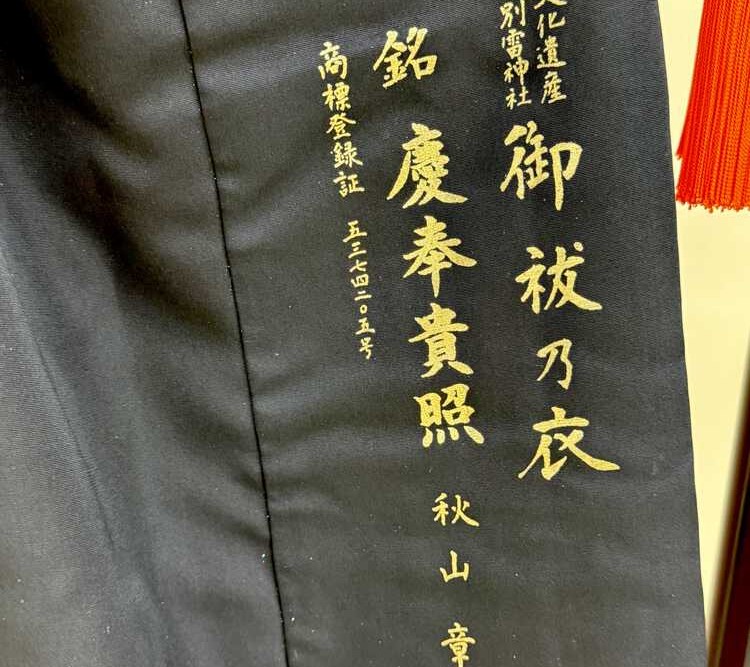 文化遺産
別雷神社
御祓乃衣
銘 慶奉貴照 秋山 章
商標登録証 五三七四二〇五号